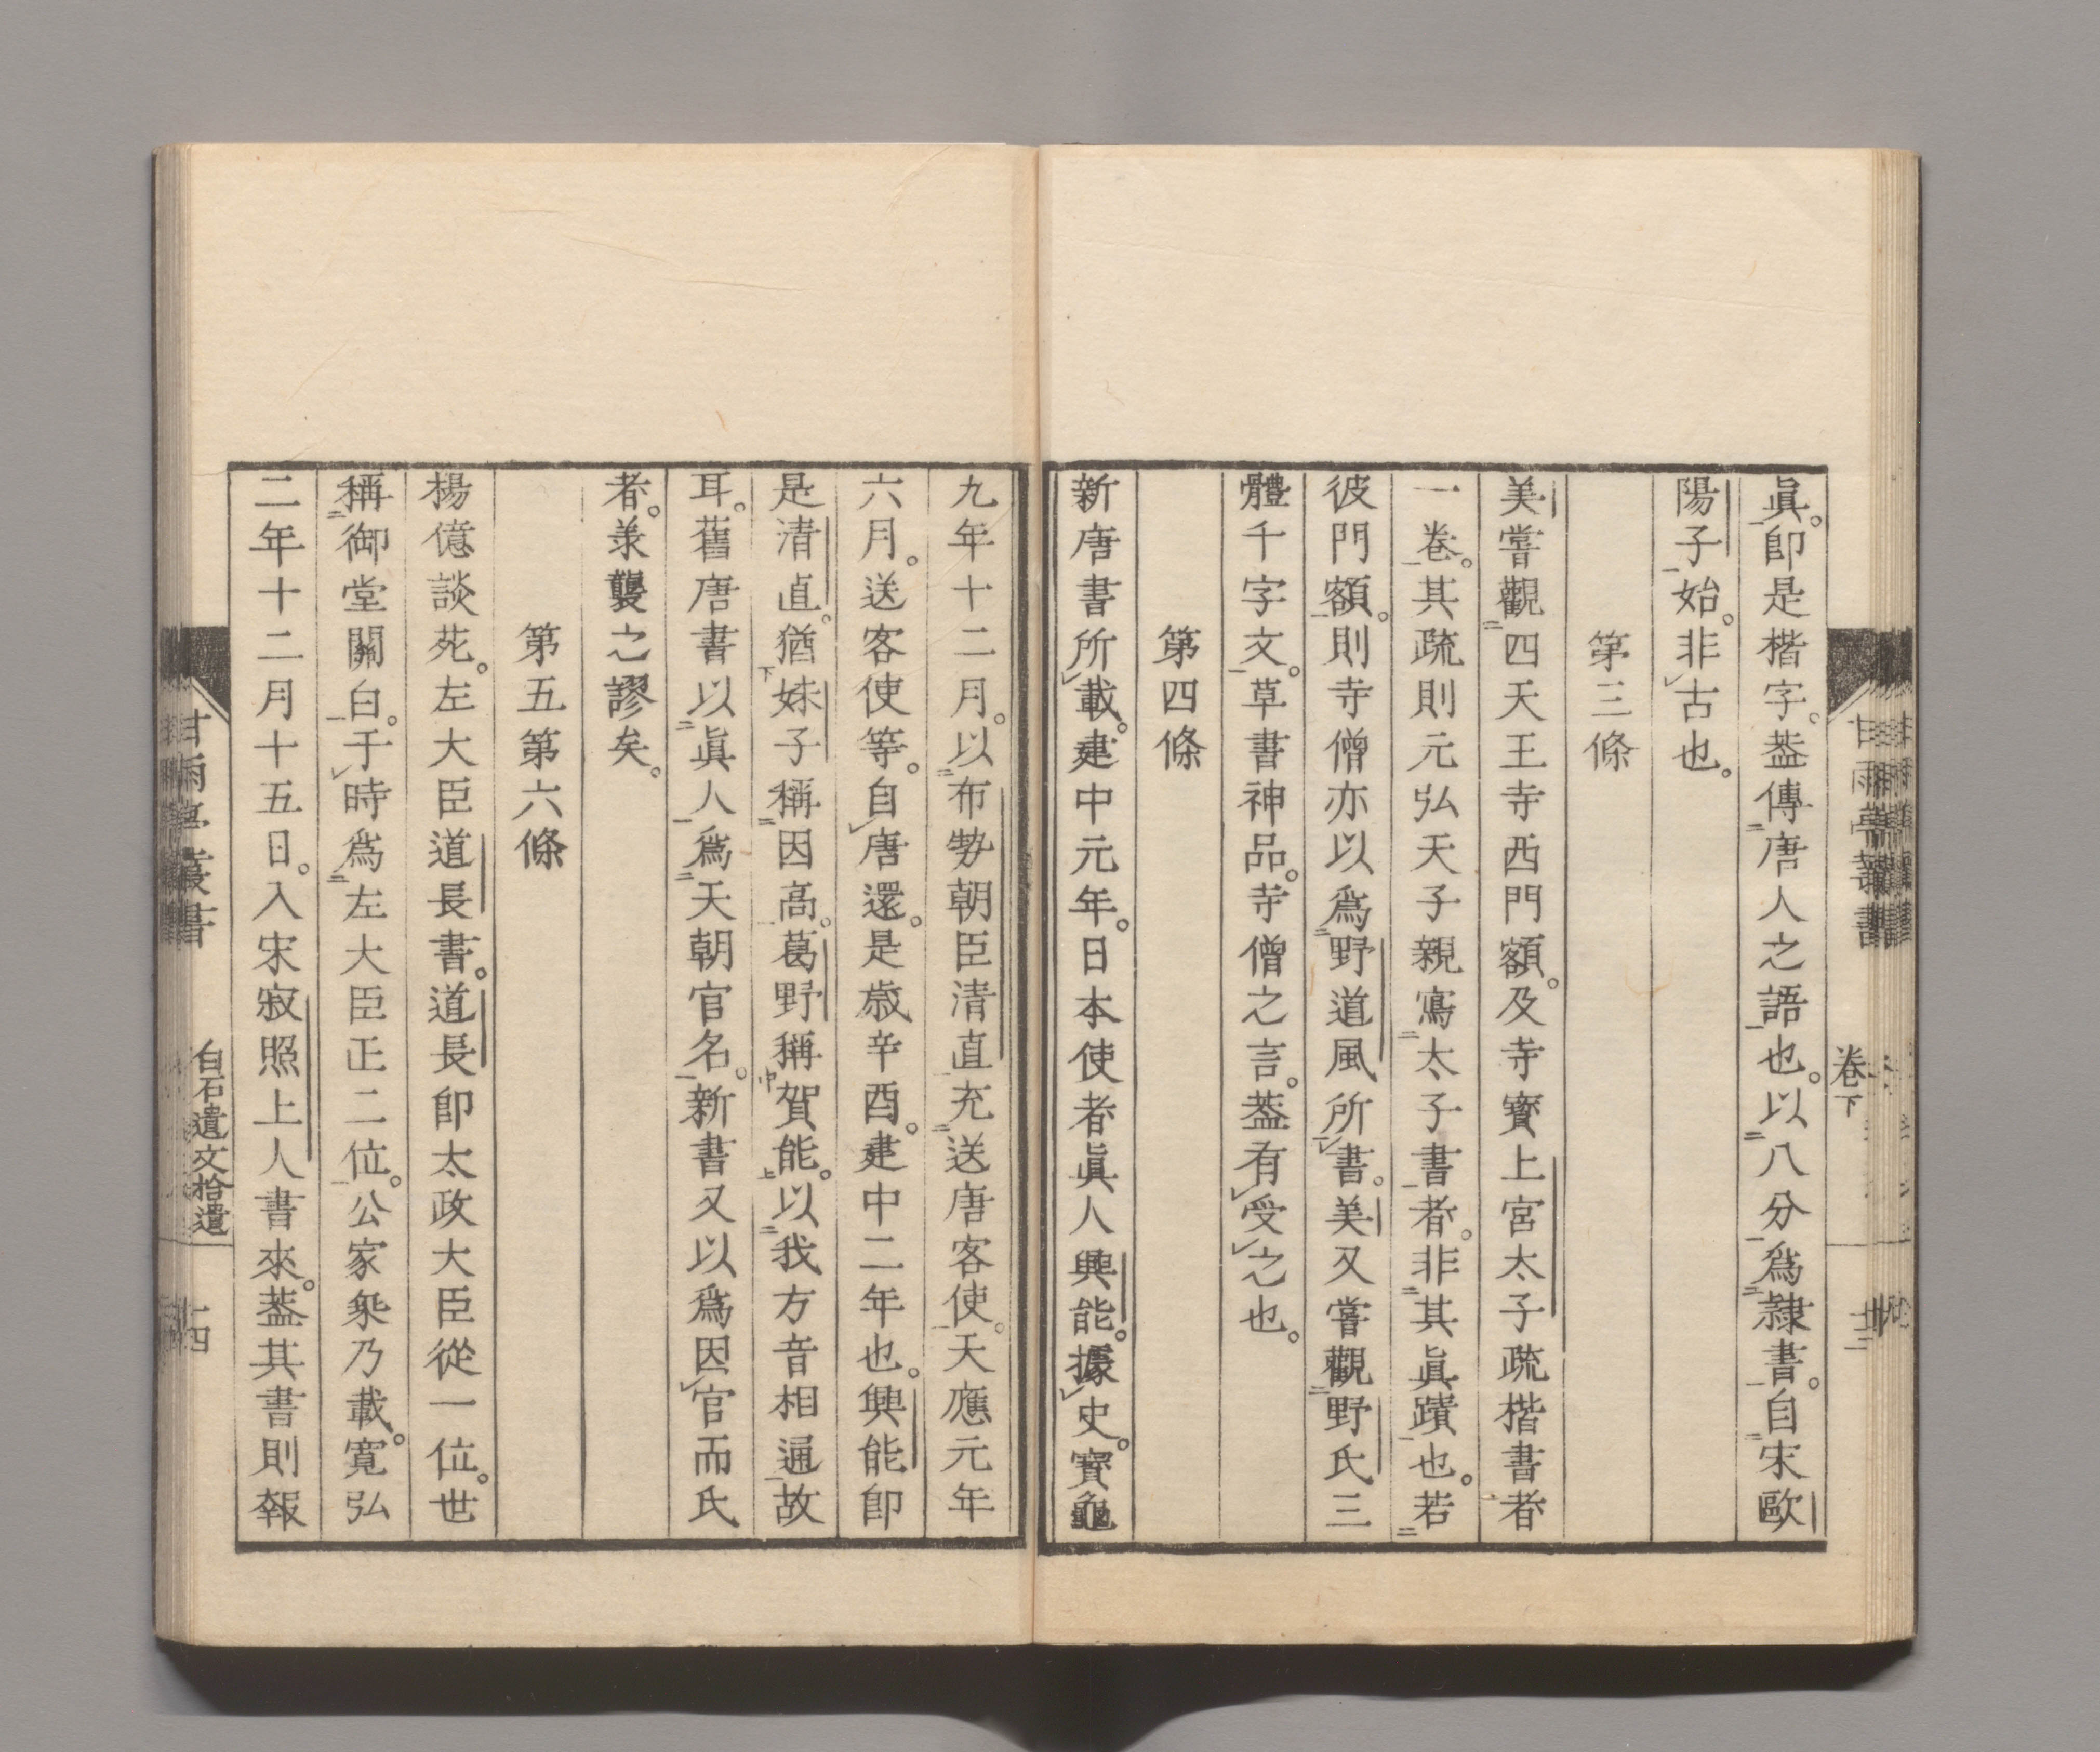 眞。卽是楷字。葢傳唐人之語也。以八分爲隷書。自宋歐
陽子始。非古也。
第三條
美嘗觀四天王寺西門額。及寺寶上宮太子疏楷書者
一卷。其疏則元弘天子親寫太子書者。非其眞蹟也。若
彼門額。則寺僧亦以爲野道風所書。美又嘗觀野氏三
體千字文。草書神品。寺僧之言。葢有受之也。
第四條
新唐書所載。建中元年。日本使者眞人興能。據史。寶龜
九年十二月。以布勢朝臣清直充送唐客使。天應元年
六月。送客使等。自唐還。是歳辛酉。建中二年也。興能卽
是清直。猶妹子稱因高。葛野稱賀能。以我方音相通故
耳。舊唐書以眞人爲天朝官名。新書又以爲因官而氏
者。羕襲之謬矣。
第五第六條
楊億談苑。左大臣道長書。道長卽太政大臣從一位。世
稱御堂關白。于時爲左大臣正二位。公家衆乃載。寬弘
二年十二月十五日。入宋寂照上人書來。葢其書則報
甘雨亭叢書
卷下
甘雨亭叢書
白石遺文拾遺